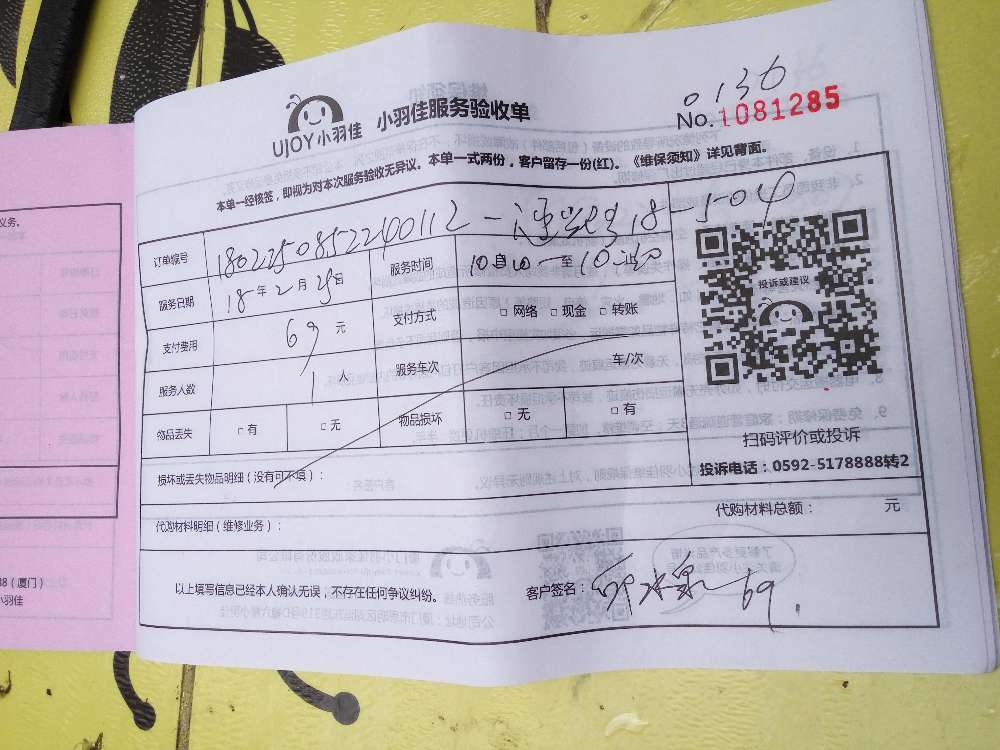 0136
UJOY小羽佳 小羽佳服务验收单 No.1081285
本单一经核签，即视为对本次服务验收无异议。本单一式两份，客户留存一份(红)。《维保须知》详见背面。
订单编号 1802250852240112 18-5-04
服务日期 18年2月25日 服务时间
支付费用 69元 支付方式 □ 网络 □ 现金 □ 转账
服务人数 1人 服务车次 车/次
物品丢失 □ 有 □ 无 物品损坏 □ 无 □ 有
投诉或建议
扫码评价或投诉
投诉电话：0592-5178888转2
损坏或丢失物品明细(没有可不填)：
代购材料明细(维修业务)： 代购材料总额： 元
以上填写信息已经本人确认无误，不存在任何争议纠纷。 客户签名： 69
义务。
38（厦门）
小羽佳